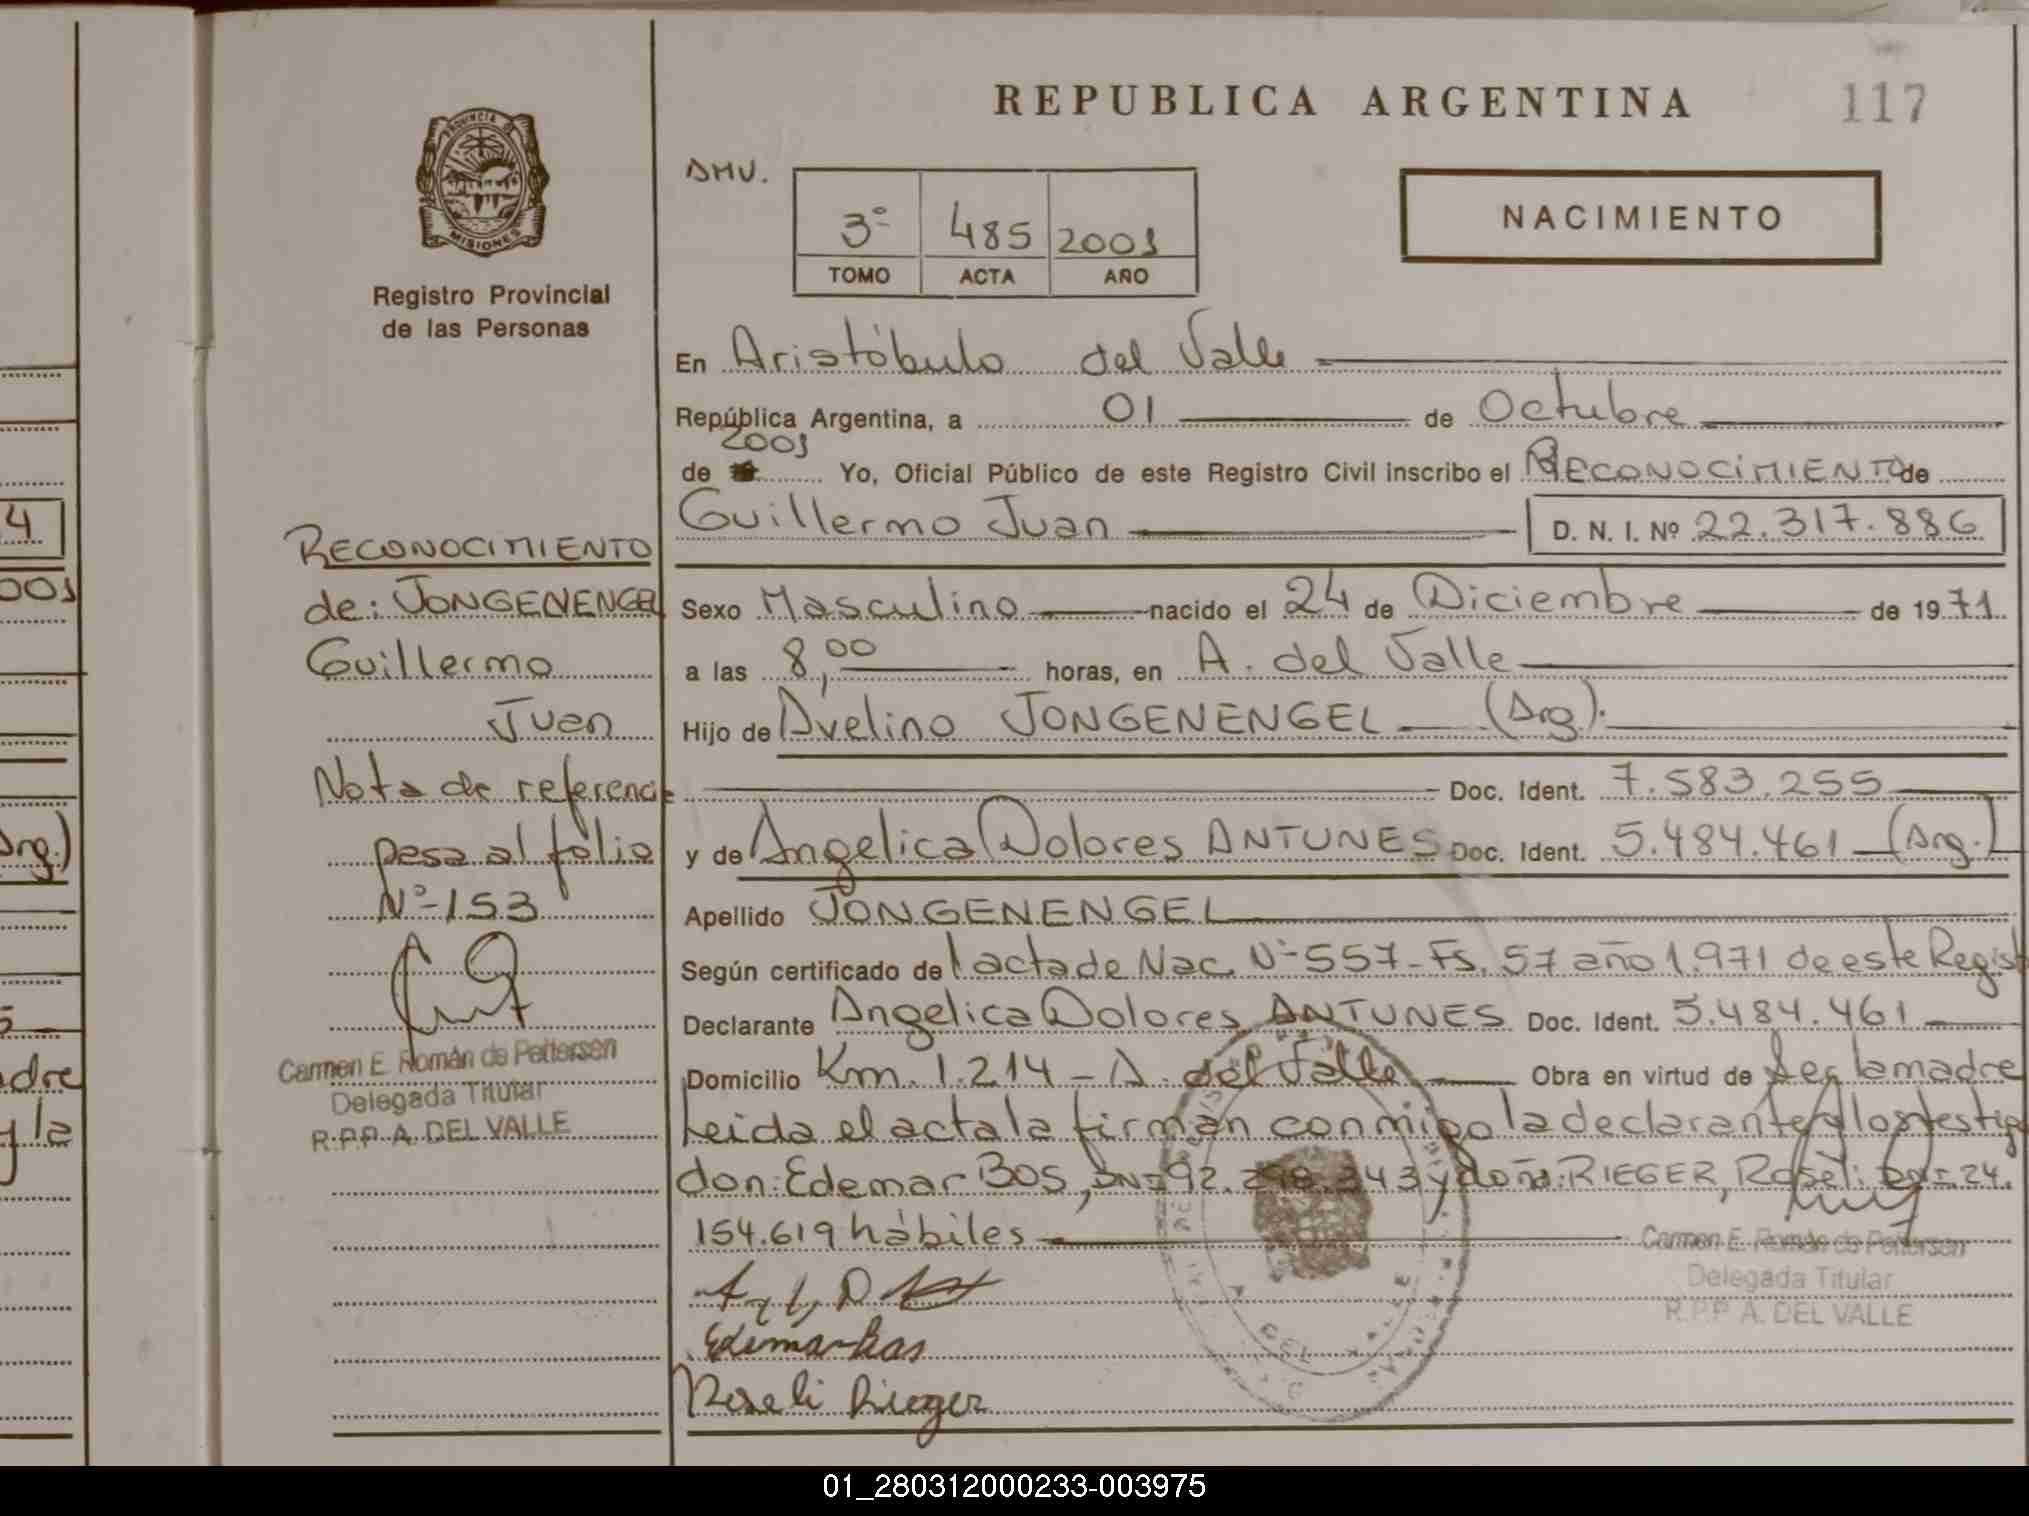 REPUBLICA ARGENTINA
117
PROVINCIA DE
MISIONES
Registro Provincial
de las Personas
DMV.
3º 485 2001
TOMO ACTA AÑO
NACIMIENTO
En Aristóbulo del Valle
República Argentina, a 01 de Octubre
2001
de Yo, Oficial Público de este Registro Civil inscribo el RECONOCIMIENTO de
Guillermo Juan D. N. I. Nº 22.317.886
Sexo Masculino nacido el 24 de Diciembre de 1971
a las 8,00 horas, en A. del Valle
Hijo de Avelino JONGENENGEL (Arg).
Doc. Ident. 7.583.255
y de Angelica Dolores ANTUNES Doc. Ident. 5.484.461 (Arg.)
Apellido JONGENENGEL
Según certificado de l acta de Nac. Nº 557-Fs. 57 año 1.971 de este Regist
Declarante Angelica Dolores ANTUNES Doc. Ident. 5.484.461
Domicilio Km. 1.214 - A. del Valle Obra en virtud de ser la madre
Leida el acta la firman conmigo la declarante y los testig
don: Edemar BOS, DNI 92.298.343 y doña: RIEGER, Roseli DNI 24.
154.619 hábiles
Edemar Bos
Roseli Rieger
Carmen E. Román de Pettersen
Delegada Titular
R.P.P A. DEL VALLE
RECONOCIMIENTO
de: JONGENENGEL
Guillermo
Juan
Nota de referenci
pasa al folio
Nº-153
Carmen E. Román de Pettersen
Delegada Titular
R.P.P. A. DEL VALLE
4
001
Arg.)
adre
y la
01_280312000233-003975